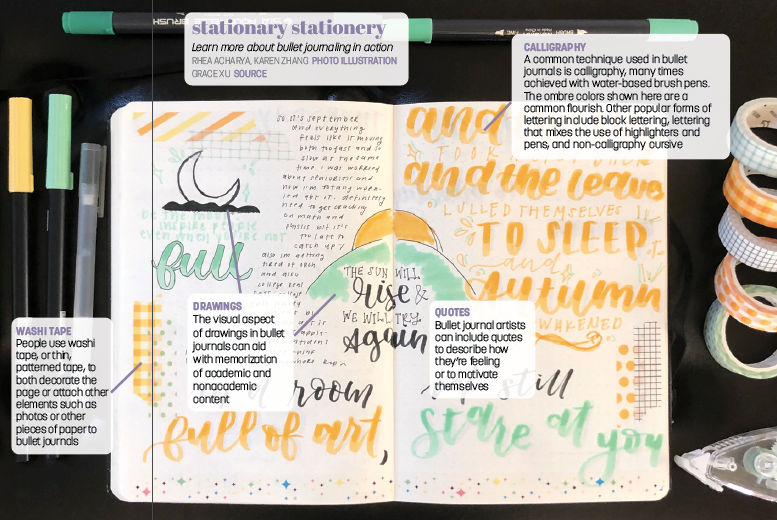 stationary stationery
Learn more about bullet journaling in action
RHEA ACHARYA, KAREN ZHANG PHOTO ILLUSTRATION
GRACE XU SOURCE
CALLIGRAPHY
A common technique used in bullet
journals is calligraphy, many times
achieved with water-based brush pens.
The ombre colors shown here are a
common flourish. Other popular forms of
lettering include block lettering, lettering
that mixes the use of highlighters and
pens, and non-calligraphy cursive
So it's september
and everything
feels like it's moving
both too fast and so
slow at the same
time. i was worried
about
now i'm
need to get cracking
on math and
catch up
also im getting
tired of
and also
college
be the moon
inspire people
even when not
full
THE SUN WILL
rise &
WE WILL TRY
again
room
full of art,
and
TOOK BACK
and the leaves
LULLED THEMSELVES
TO SLEEP
and
autumn
AWAKENED
still
stare at you
DRAWINGS
The visual aspect
of drawings in bullet
journals can aid
with memorization
of academic and
nonacademic
content
QUOTES
Bullet journal artists
can include quotes
to describe how
they're feeling
or to motivate
themselves
WASHI TAPE
People use washi
tape, or thin,
patterned tape, to
both decorate the
page or attach other
elements such as
photos or other
pieces of paper to
bullet journals